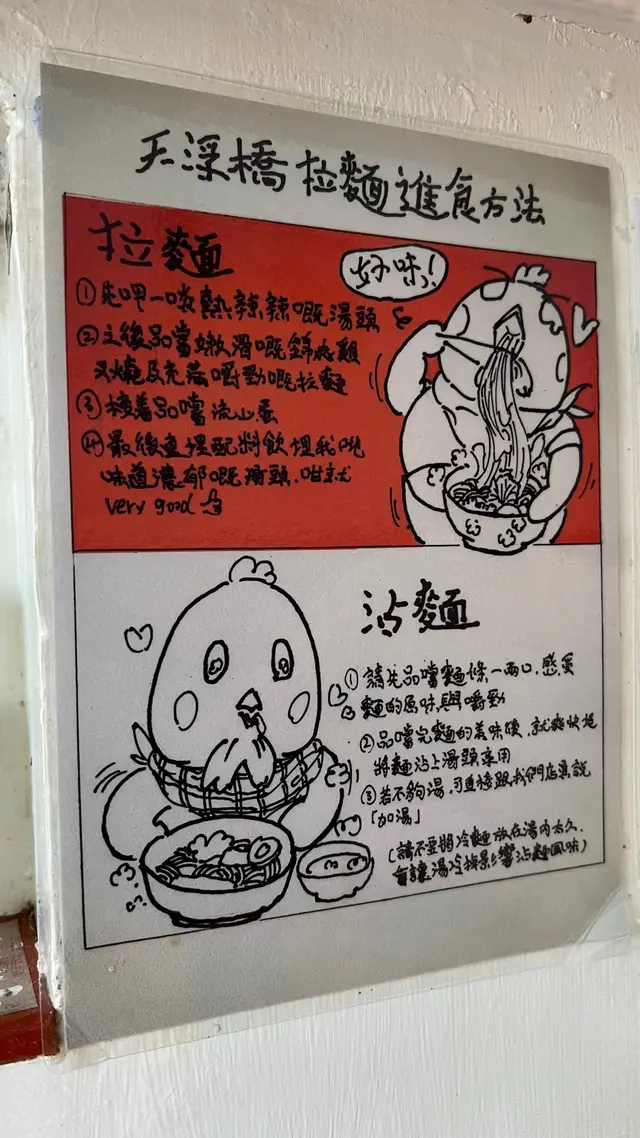 天深橋拉麵進食方法
拉麵
好味!
①先呷一啖熱辣辣嘅湯頭
②之後品嚐嫩滑嘅錦爽雞
叉燒及充滿嚼勁嘅拉麵
③接着品嚐流心蛋
④最後查埋配料飲埋我哋
味道濃郁嘅湯頭.咁就
very good
沾麵
①請先品嚐麵條一兩口.感受
麵的原味與嚼勁
②品嚐完麵的美味後.就爽快地
將麵沾上湯頭享用
③若不夠湯.可直接跟我們店員說
「加湯」
(請不要將冷麵放在湯內太久.
會讓湯冷掉影響沾麵風味)